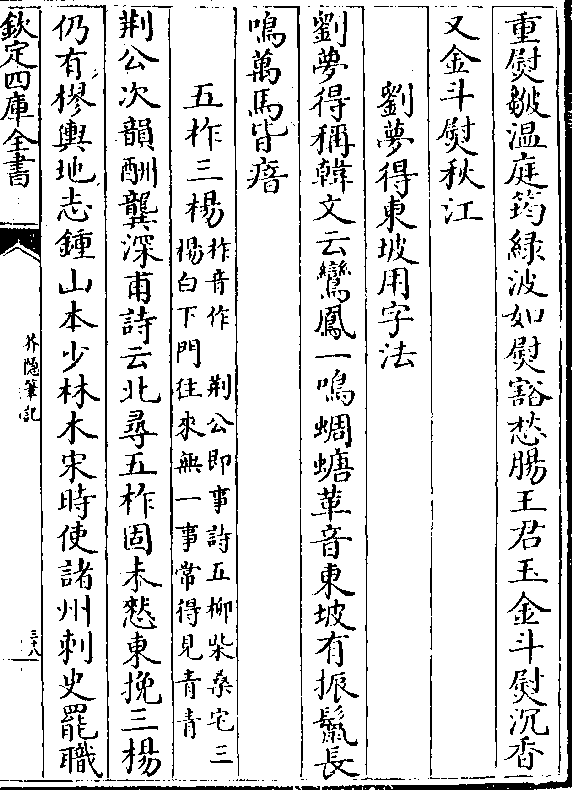 重熨皺温庭筠緑波如熨豁愁腸王君玉金斗熨沉香
又金斗熨秋江
劉夢得東坡用字法
劉夢得稱韓文云鸞鳳一鳴蜩螗革音東坡有振鬛長
鳴萬馬皆瘖
五柞三楊柞音作 荆公即事詩五柳柴桑宅三
楊白下門往來無一事常得見青青
荆公次韻酬龔深甫詩云北尋五柞固未憗東挽三楊
仍有樛輿地志鍾山本少林木宋時使諸州刺史罷職
欽定四庫全書
芥隠筆記
三十八